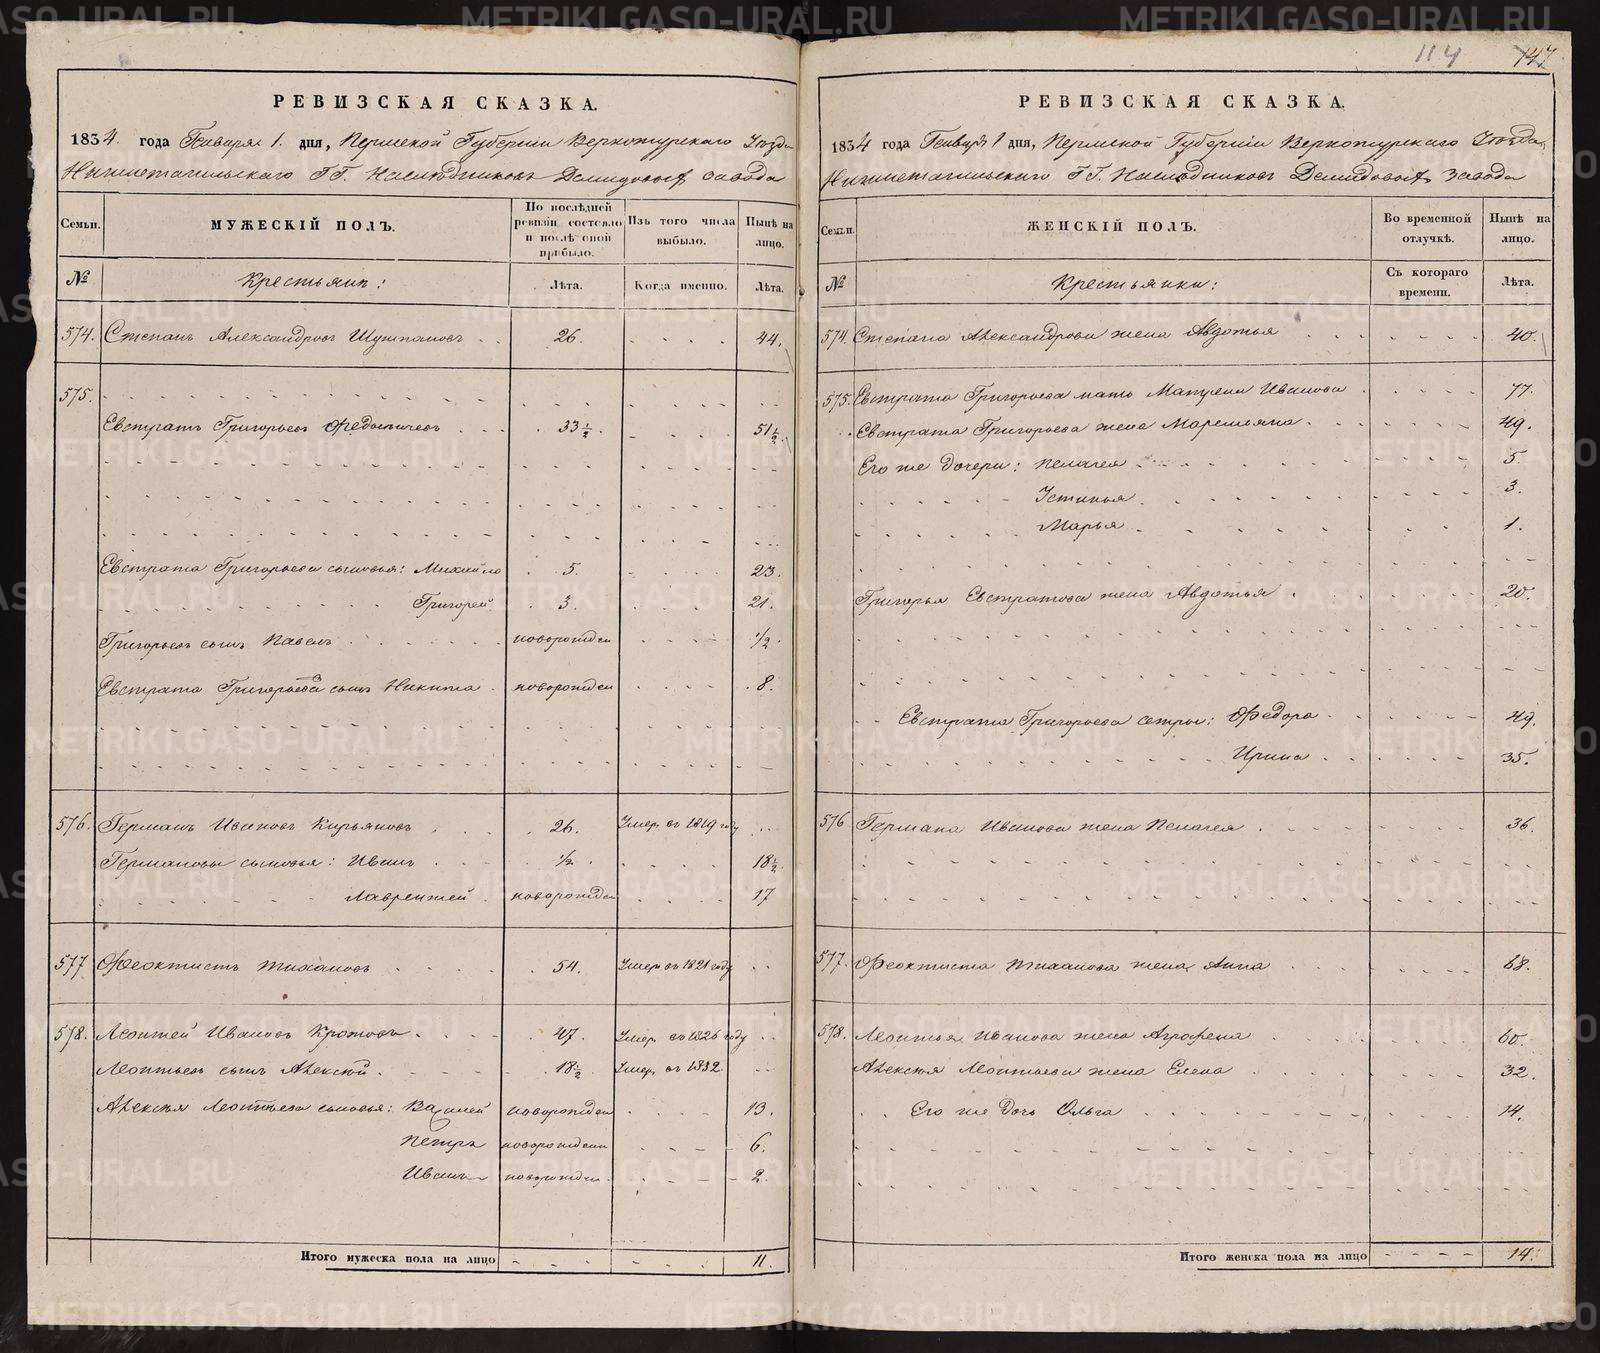 114 147
РЕВИЗСКАЯ СКАЗКА.
1834. года Генваря 1. дня, Пермской Губернiи Верхотурскаго Уѣзда
Нижнетагильскаго ГГ. Наслѣдниковъ Демидовыхъ завода
Семьи.
МУЖЕСКIЙ ПОЛЪ.
По послѣдней ревизiи состояло и послѣ оной прибыло.
Изъ того числа выбыло.
Нынѣ на лицо.
№
Крестьяне:
Лѣта.
Когда именно.
Лѣта.
574. Степанъ Александровъ Шушпановъ 26. 44.
575.
Евстратъ Григорьевъ Федосѣичевъ 33 ½ 51 ½
Евстрата Григорьева сыновья: Михайло 5. 23.
Григорей 3. 21.
Григорьевъ сынъ Павелъ новорожден ½
Евстрата Григорьева сынъ Никита новорожден 8.
576. Германъ Ивановъ Кирьяновъ 26. Умер. въ 1819 году
Германовы сыновья: Иванъ ½ 18 ½
Лаврентей новорожден 17
577 Феоктистъ Тихановъ 54. Умер. въ 1821 году
578. Леонтей Ивановъ Кротовъ 47. Умер. въ 1826 году
Леонтьевъ сынъ Алексѣй 18 ½ Умер. въ 1832.
Алексѣя Леонтьева сыновья: Василей новорожден 13.
Петръ новорожден 6.
Иванъ новорожден 2.
Итого мужеска пола на лицо 11.
РЕВИЗСКАЯ СКАЗКА.
1834 года Генваря 1 дня, Пермской Губернiи Верхотурскаго Уѣзда,
Нижнетагильскаго ГГ. Наслѣдниковъ Демидовыхъ завода
Семьи.
ЖЕНСКIЙ ПОЛЪ.
Во временной отлучкѣ.
Нынѣ на лицо.
№
Крестьянки:
Съ котораго времени.
Лѣта.
574. Степана Александрова жена Авдотья 40.
575. Евстрата Григорьева мать Матрена Иванова 77.
Евстрата Григорьева жена Маремьяна 49.
Его же дочери: Пелагея 5.
Устинья 3.
Марья 1.
Григорья Евстратова жена Авдотья 20.
Евстрата Григорьева сестры: Федора 49.
Ирина 35.
576 Германа Иванова жена Пелагея 36.
577. Феоктиста Тиханова жена Анна 68.
578. Леонтья Иванова жена Аграфена 60.
Алексѣя Леонтьева жена Елена 32.
Его же дочь Ольга 14.
Итого женска пола на лицо 14.
METRIKI.GASO-URAL.RU